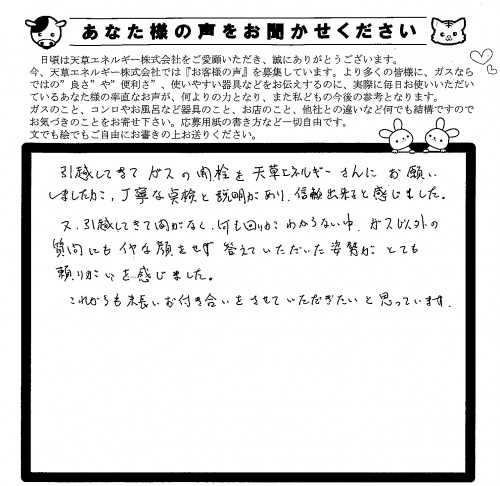 あなた様の声をお聞かせください
日頃は天草エネルギー株式会社をご愛顧いただき、誠にありがとうございます。
今、天草エネルギー株式会社では『お客様の声』を募集しています。より多くの皆様に、ガスなら
ではの"良さ"や"便利さ"、使いやすい器具などをお伝えするのに、実際に毎日お使いいただい
ているあなた様の率直なお声が、何よりの力となり、また私どもの今後の参考となります。
ガスのこと、コンロやお風呂など器具のこと、お店のこと、他社との違いなど何でも結構ですので
お気づきのことをお寄せ下さい。応募用紙の書き方など一切自由です。
文でも絵でもご自由にお書きの上お送りください。
引越してきて ガスの開栓を天草エネルギーさんに お願い
しましたが、丁寧な点検と説明があり、信頼出来ると感じました。
又、引越してきて間がなく、何も回りが わからない中、ガス以外の
質問にも イヤな顔をせず 答えていただいた姿勢が とても
頼りがいを感じました。
これからも末長いお付き合いをさせていただきたいと思っています。